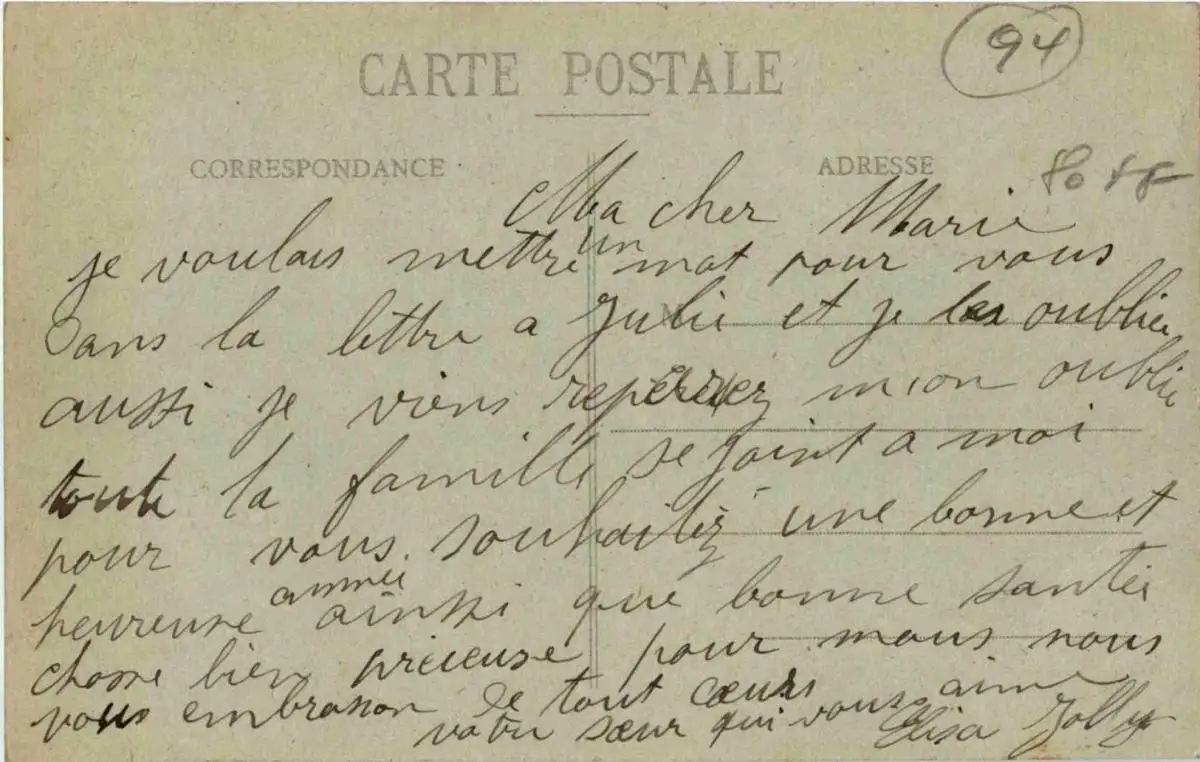 94
CARTE POSTALE
CORRESPONDANCE
ADRESSE
Ma cher Marie
je voulais mettre un mot pour vous
Dans la lettre a Julie et je les oublier
aussi je viens reperrez mon oublie
toute la famille se joint a moi
pour vous souhaitez une bonne et
heureuse année ainssi que bonne santée
chosse bien precieuse pour mous nous
vous embrasson de tout cœurs
votre sœur qui vous aime
Elisa Jolly